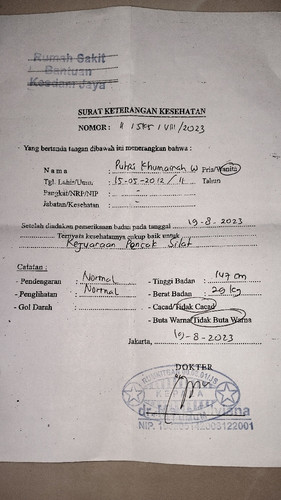 Rumah Sakit
Bantuan
Kesdam Jaya
SURAT KETERANGAN KESEHATAN
NOMOR : 1585 / VIII / 2023
- Yang bertanda tangan dibawah ini menerangkan bahwa :
Nama : Putri Khumairah W Pria/Wanita
Tgl. Lahir/Umur : 15-05-2012 / 11 Tahun
Pangkat/NRP/NIP : -
Jabatan/Kesehatan : -
Setelah diadakan pemeriksaan badan pada tanggal 19-8-2023
Ternyata kesehatannya cukup baik untuk
Kejuaraan Pencak Silat
Catatan :
- Pendengaran : Normal
- Penglihatan : Normal
- Gol Darah :
- Tinggi Badan : 147 cm
- Berat Badan : 29 kg
- Cacad/Tidak Cacad
- Buta Warna/Tidak Buta Warna
Jakarta, 19-8-2023
DOKTER
KEPALA
dr.
NIP.